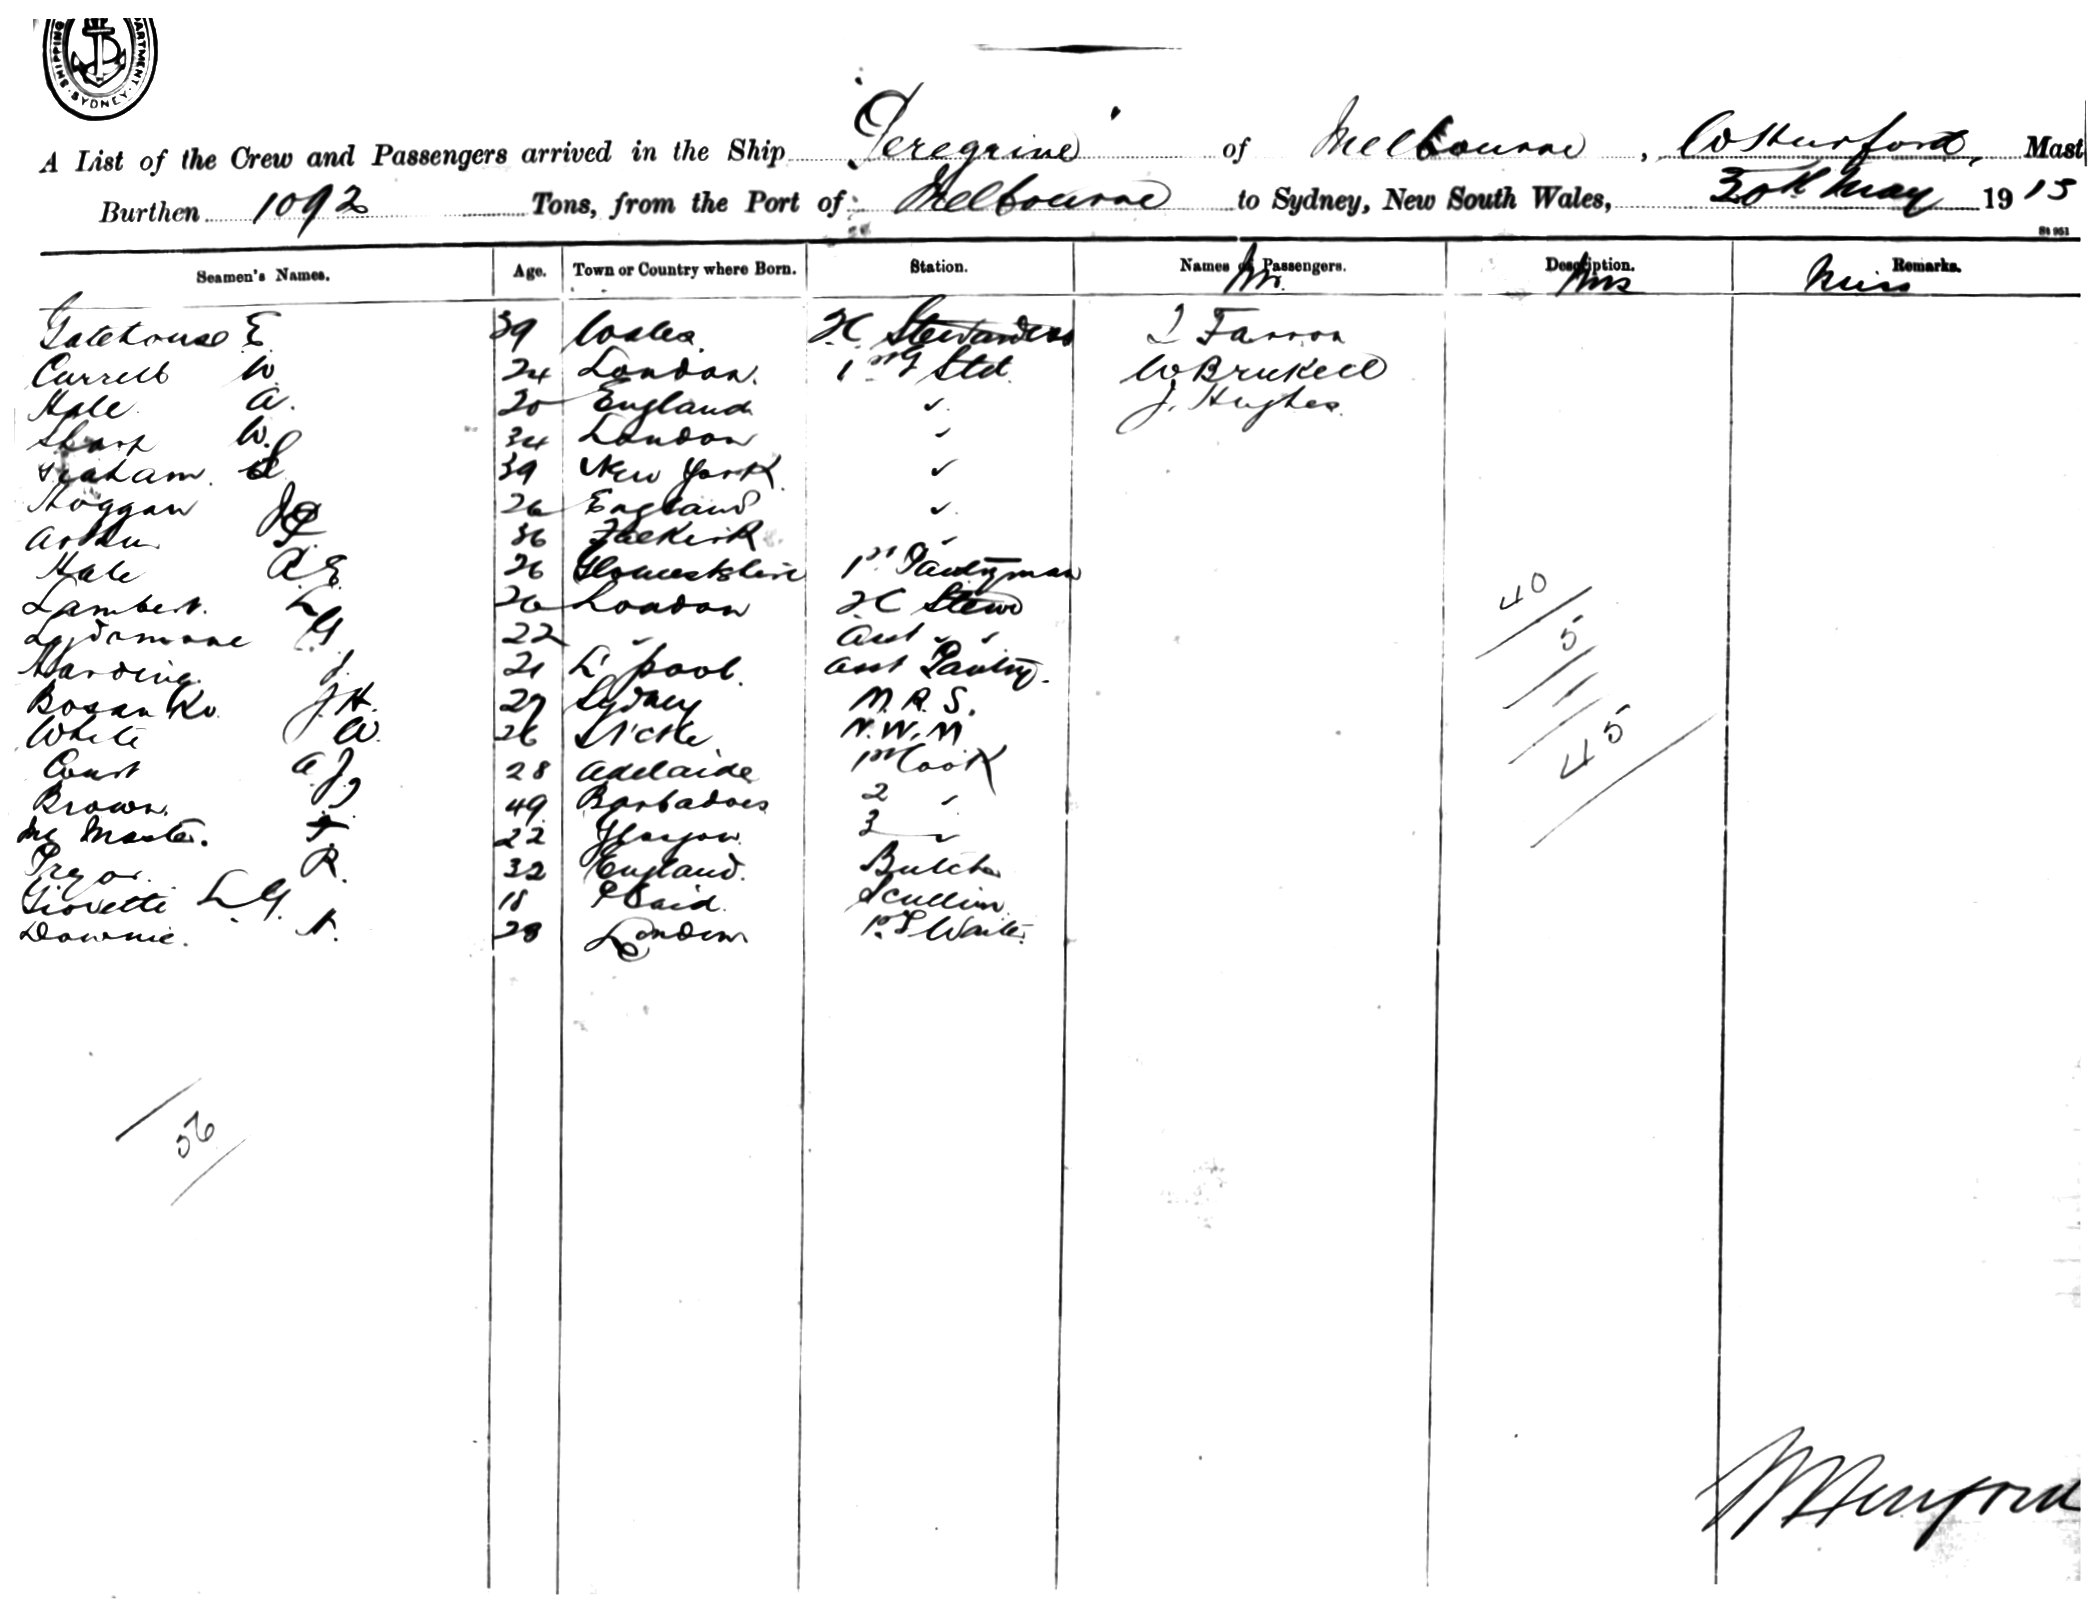 SHIPPING DEPARTMENT SYDNEY
A List of the Crew and Passengers arrived in the Ship "Peregrine" of Melbourne, W Hurford, Mast
Burthen 1092 Tons, from the Port of Melbourne to Sydney, New South Wales, 30th May 1915
St 951
Seamen's Names. Age. Town or Country where Born. Station. Names of Passengers. Description. Remarks.
Mr. Mrs Miss
Gatehouse E 39 Wales FC Stewardess J Farron
Currell W 24 London 1st S Std W Bruckell
Hale A. 20 England " J. Hughes
Sharp W. 34 London "
Graham 39 New York "
Hoggan J 26 England "
Arthur 36 Falkirk "
Hale A E 26 Gloucestshire 1st Pantryman
Lambert L 26 London 2C Stewd
G 22 " Asst "
Harding J 21 L'pool Asst Pantry.
Bosanko J.H. 27 Sydney M.R.S.
White W. 26 N.W.M
Court A J 28 Adelaide 1st Cook
Brown J 49 Barbadoes 2 "
Mc Master. F 22 Glasgow 3 "
Pryor R. 32 England. Butcher
Giovetti L.G. 18 P Said Scullion
Downie. A. 28 London 1st S Waiter
40
5
45
56
W Hurford